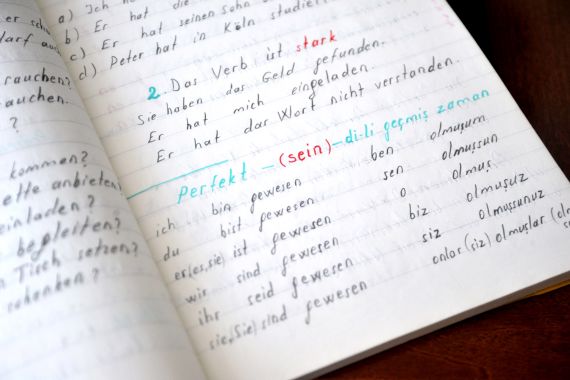 er
darf au
rauchen?
auchen.
?
kommen?
ette anbieten
einladen?
begleiten?
n Tisch setzen?
schenken?
a) Ich h
b) Er hat die
c) Er hat seinen Sohn
d) Peter hat in Köln studie
2. Das Verb ist stark
Sie haben das Geld gefunden.
Er hat mich eingeladen.
Er hat das Wort nicht verstanden.
Perfekt - (sein) - di-li geçmiş zaman
ich bin gewesen ben olmuşum
du bist gewesen sen olmuşsun
er(es,sie) ist gewesen o olmuş
wir sind gewesen biz olmuşuz
ihr seid gewesen siz olmuşsunuz
sie,(Sie) sind gewesen onlar (siz) olmuşlar (ol